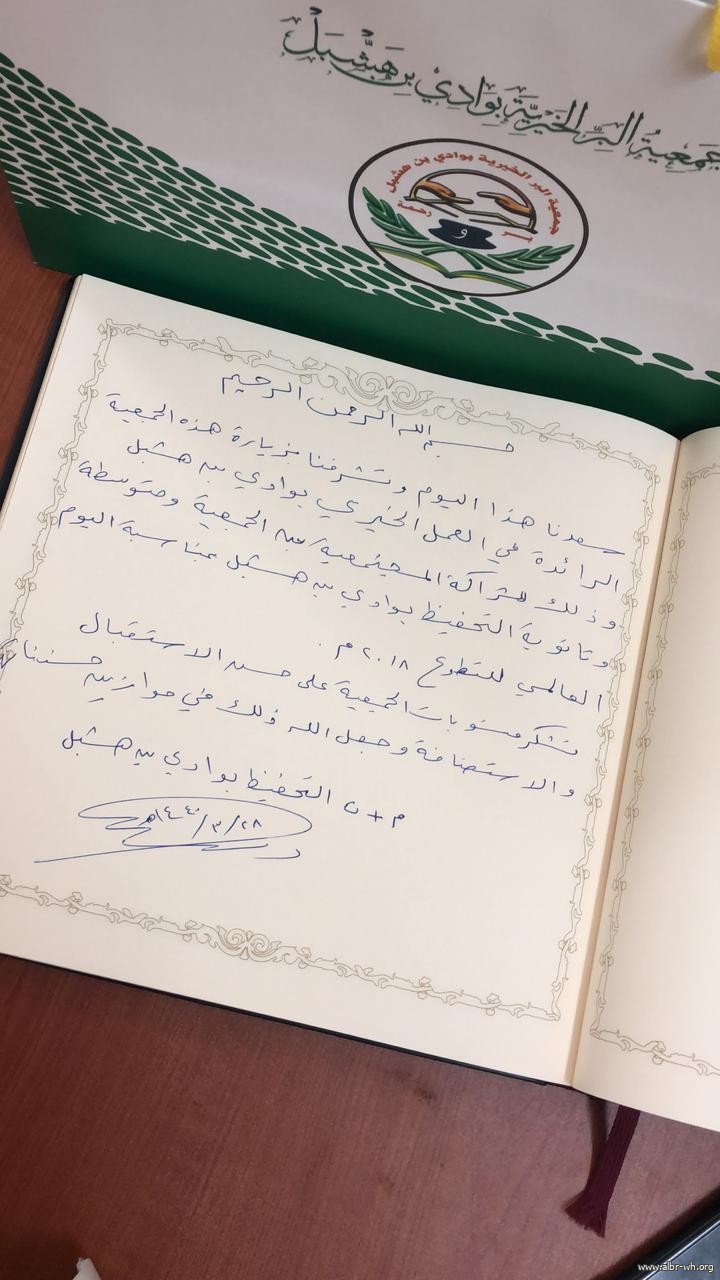 جمعية البر الخيرية بوادي بن هشبل
جمعية البر الخيرية بوادي بن هشبل
بسم الله الرحمن الرحيم
سعدنا هذا اليوم وتشرفنا بزيارة هذه الجمعية
الرائدة في العمل الخيري بوادي بن هشبل
وذلك للشراكة المجتمعية بين الجمعية ومتوسطة
وثانوية التحفيظ بوادي بن هشبل بمناسبة اليوم
العالمي للتطوع ٢٠١٨ م .
نشكر منسوبات الجمعية على حسن الاستقبال
والاستضافة وجعل الله ذلك في موازين حسناتهم
م + ث التحفيظ بوادي بن هشبل
٢٨ / ٣ / ١٤٤٠هـ
www.albr-wh.org